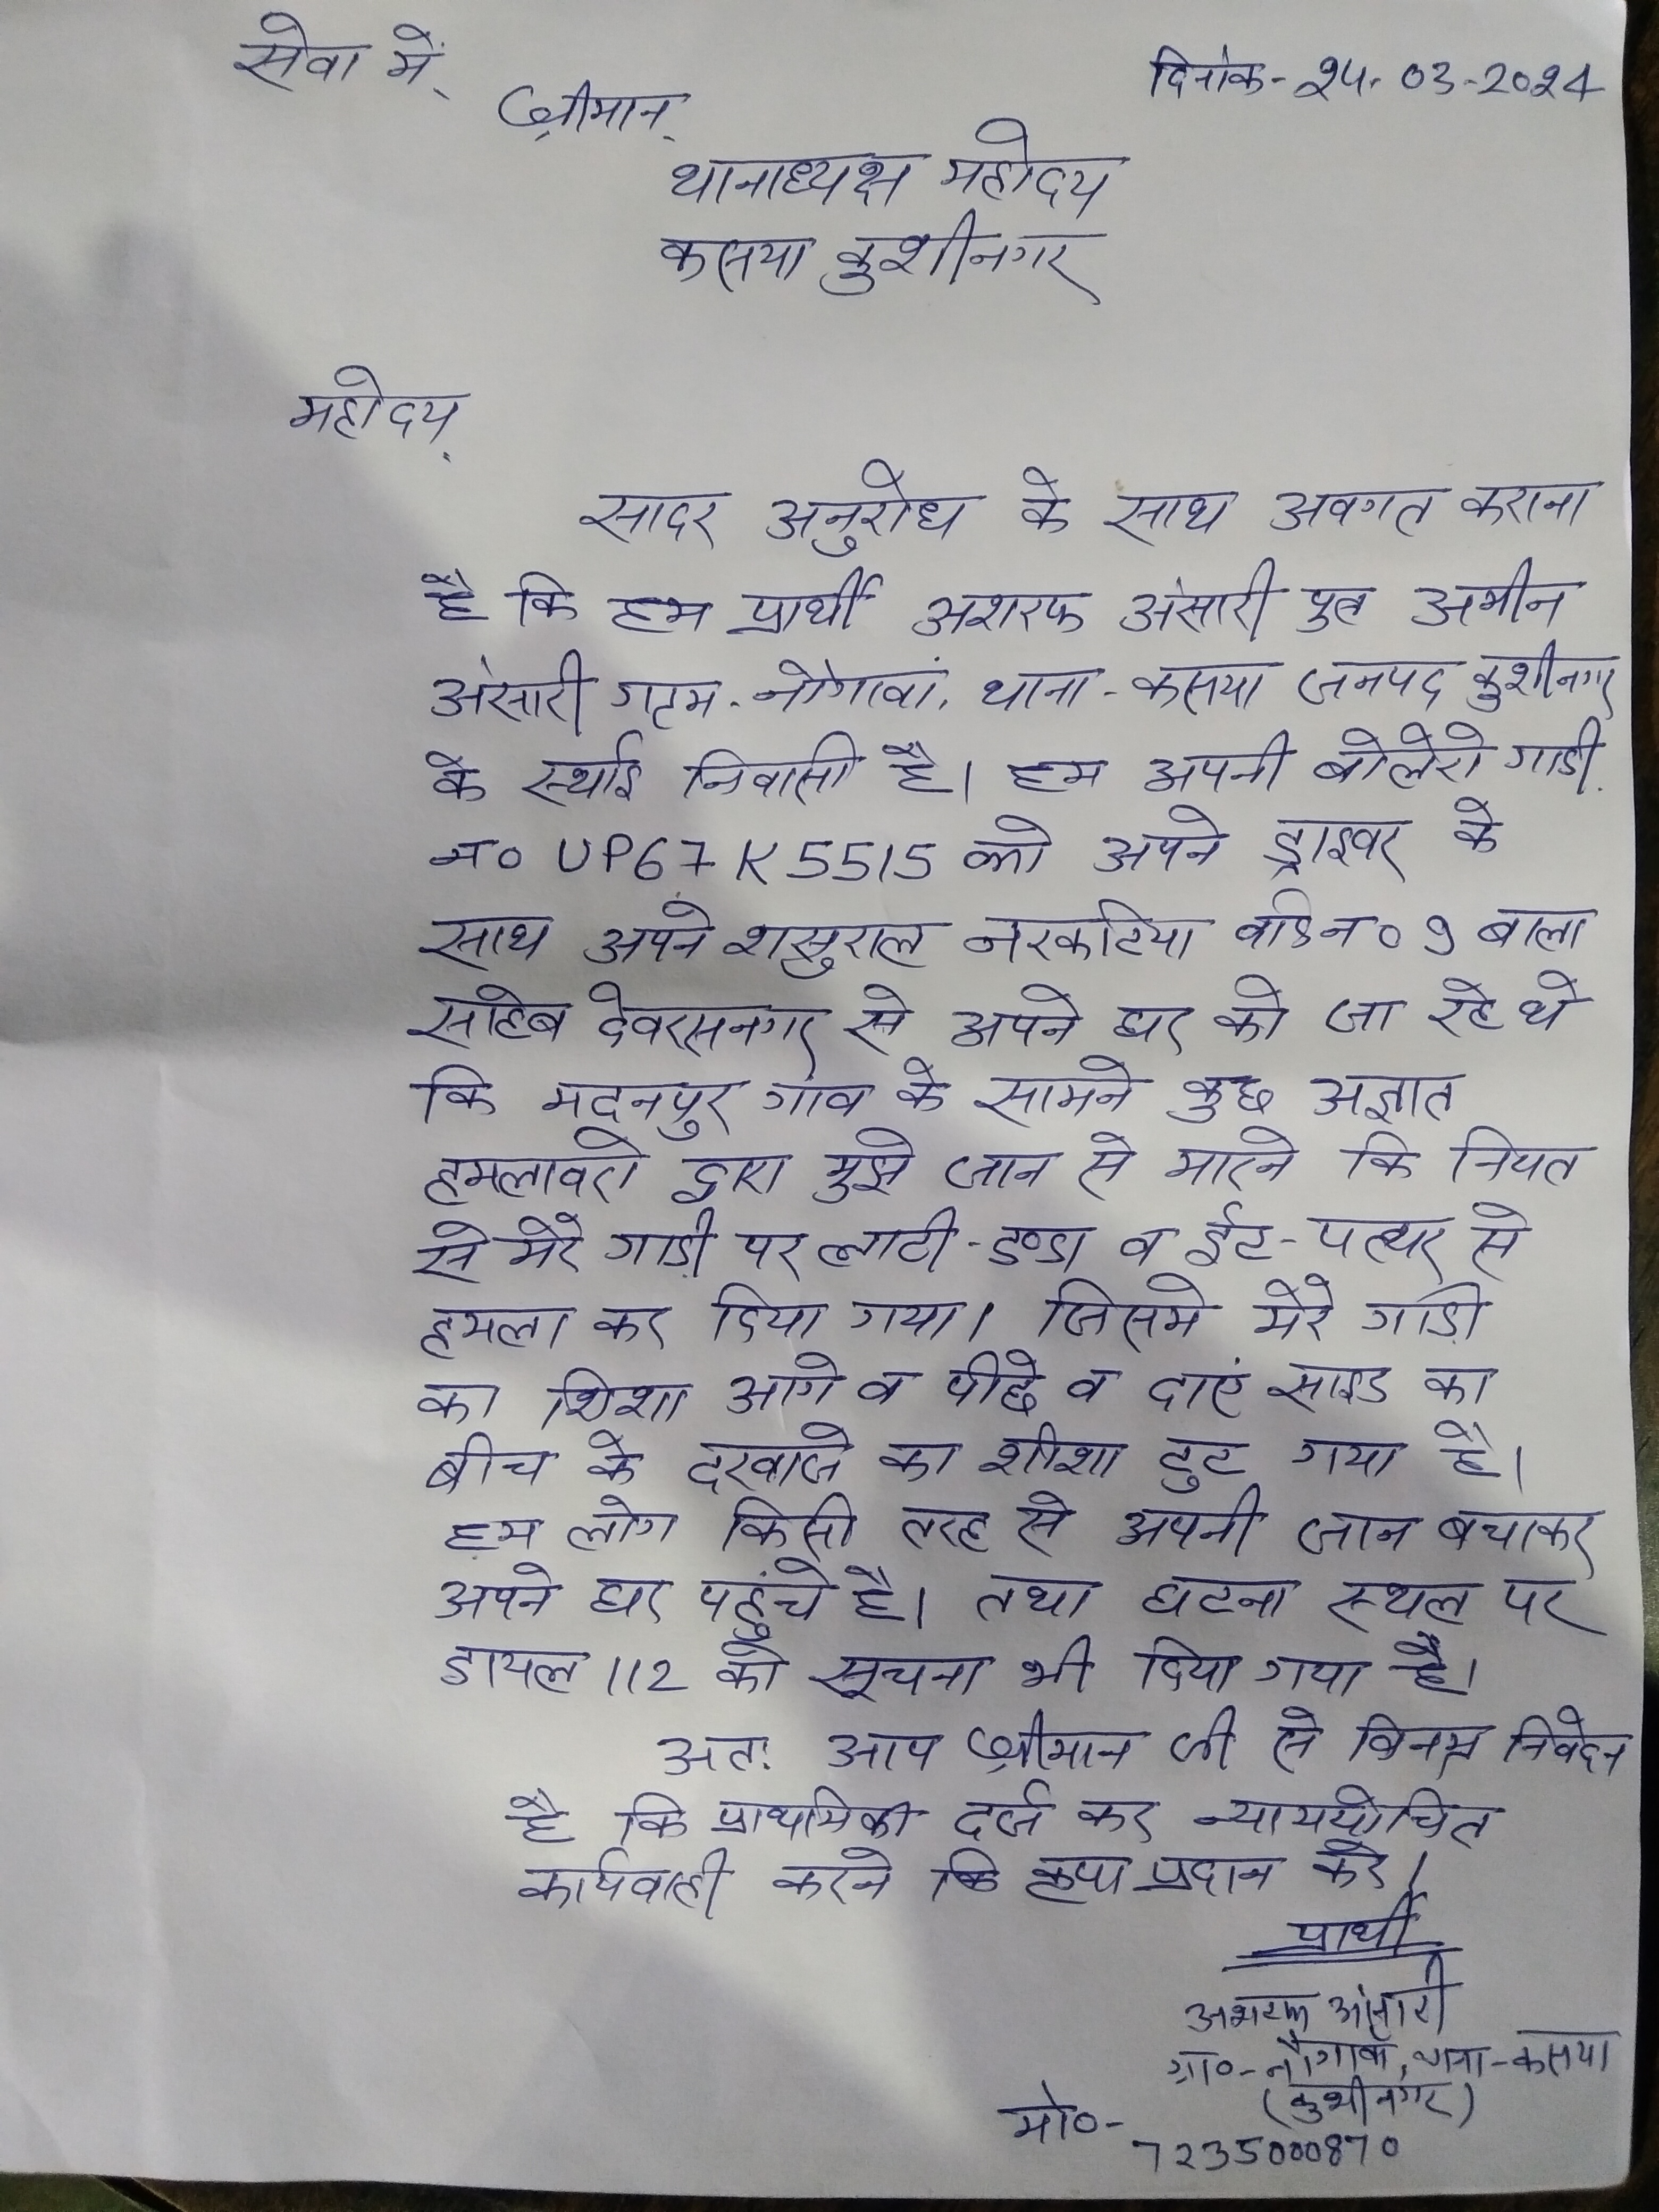 सेवा में,
दिनांक- 24-03-2024
श्रीमान,
थानाध्यक्ष महोदय
कसया कुशीनगर
महोदय,
सादर अनुरोध के साथ अवगत कराना
है कि हम प्रार्थी अशरफ अंसारी पुत्र अमीन
अंसारी ग्राम-नौगावां, थाना-कसया जनपद कुशीनगर
के स्थाई निवासी है। हम अपनी बोलेरो गाडी
न० UP67K5515 को अपने ड्राइवर के
साथ अपने शसुराल नरकटिया वार्ड न० 9 बाला
साहेब देवरसनगर से अपने घर को जा रहे थे
कि मदनपुर गांव के सामने कुछ अज्ञात
हमलावरो द्वारा मुझे जान से मारने कि नियत
से मेरे गाड़ी पर लाटी-डण्डा व ईट-पत्थर से
हमला कर दिया गया। जिसमे मेरे गाड़ी
का शिशा आगे व पीछे व दाएं साइड का
बीच के दरवाजे का शीशा टुट गया है।
हम लोग किसी तरह से अपनी जान बचाकर
अपने घर पहुंचे है। तथा घटना स्थल पर
डायल 112 को सूचना भी दिया गया है।
अतः आप श्रीमान जी से विनम्र निवेदन
है कि प्राथमिकी दर्ज कर न्याययोचित
कार्यवाही करने कि कृपा प्रदान करे।
प्रार्थी
अशरफ अंसारी
ग्रा०-नौगावां, थाना-कसया
(कुशीनगर)
मो०-
7235000870